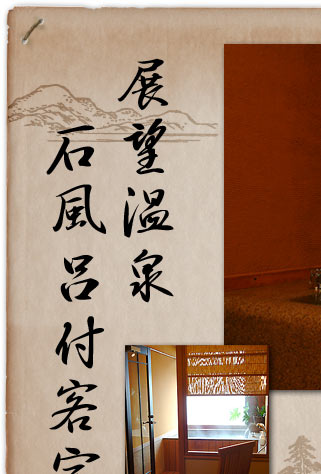 展望温泉
石風呂付客室